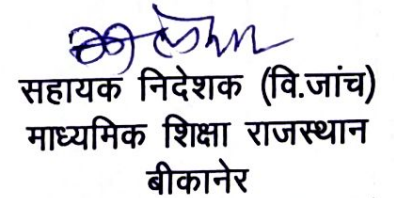 सहायक निदेशक (वि.जांच)
माध्यमिक शिक्षा राजस्थान
बीकानेर